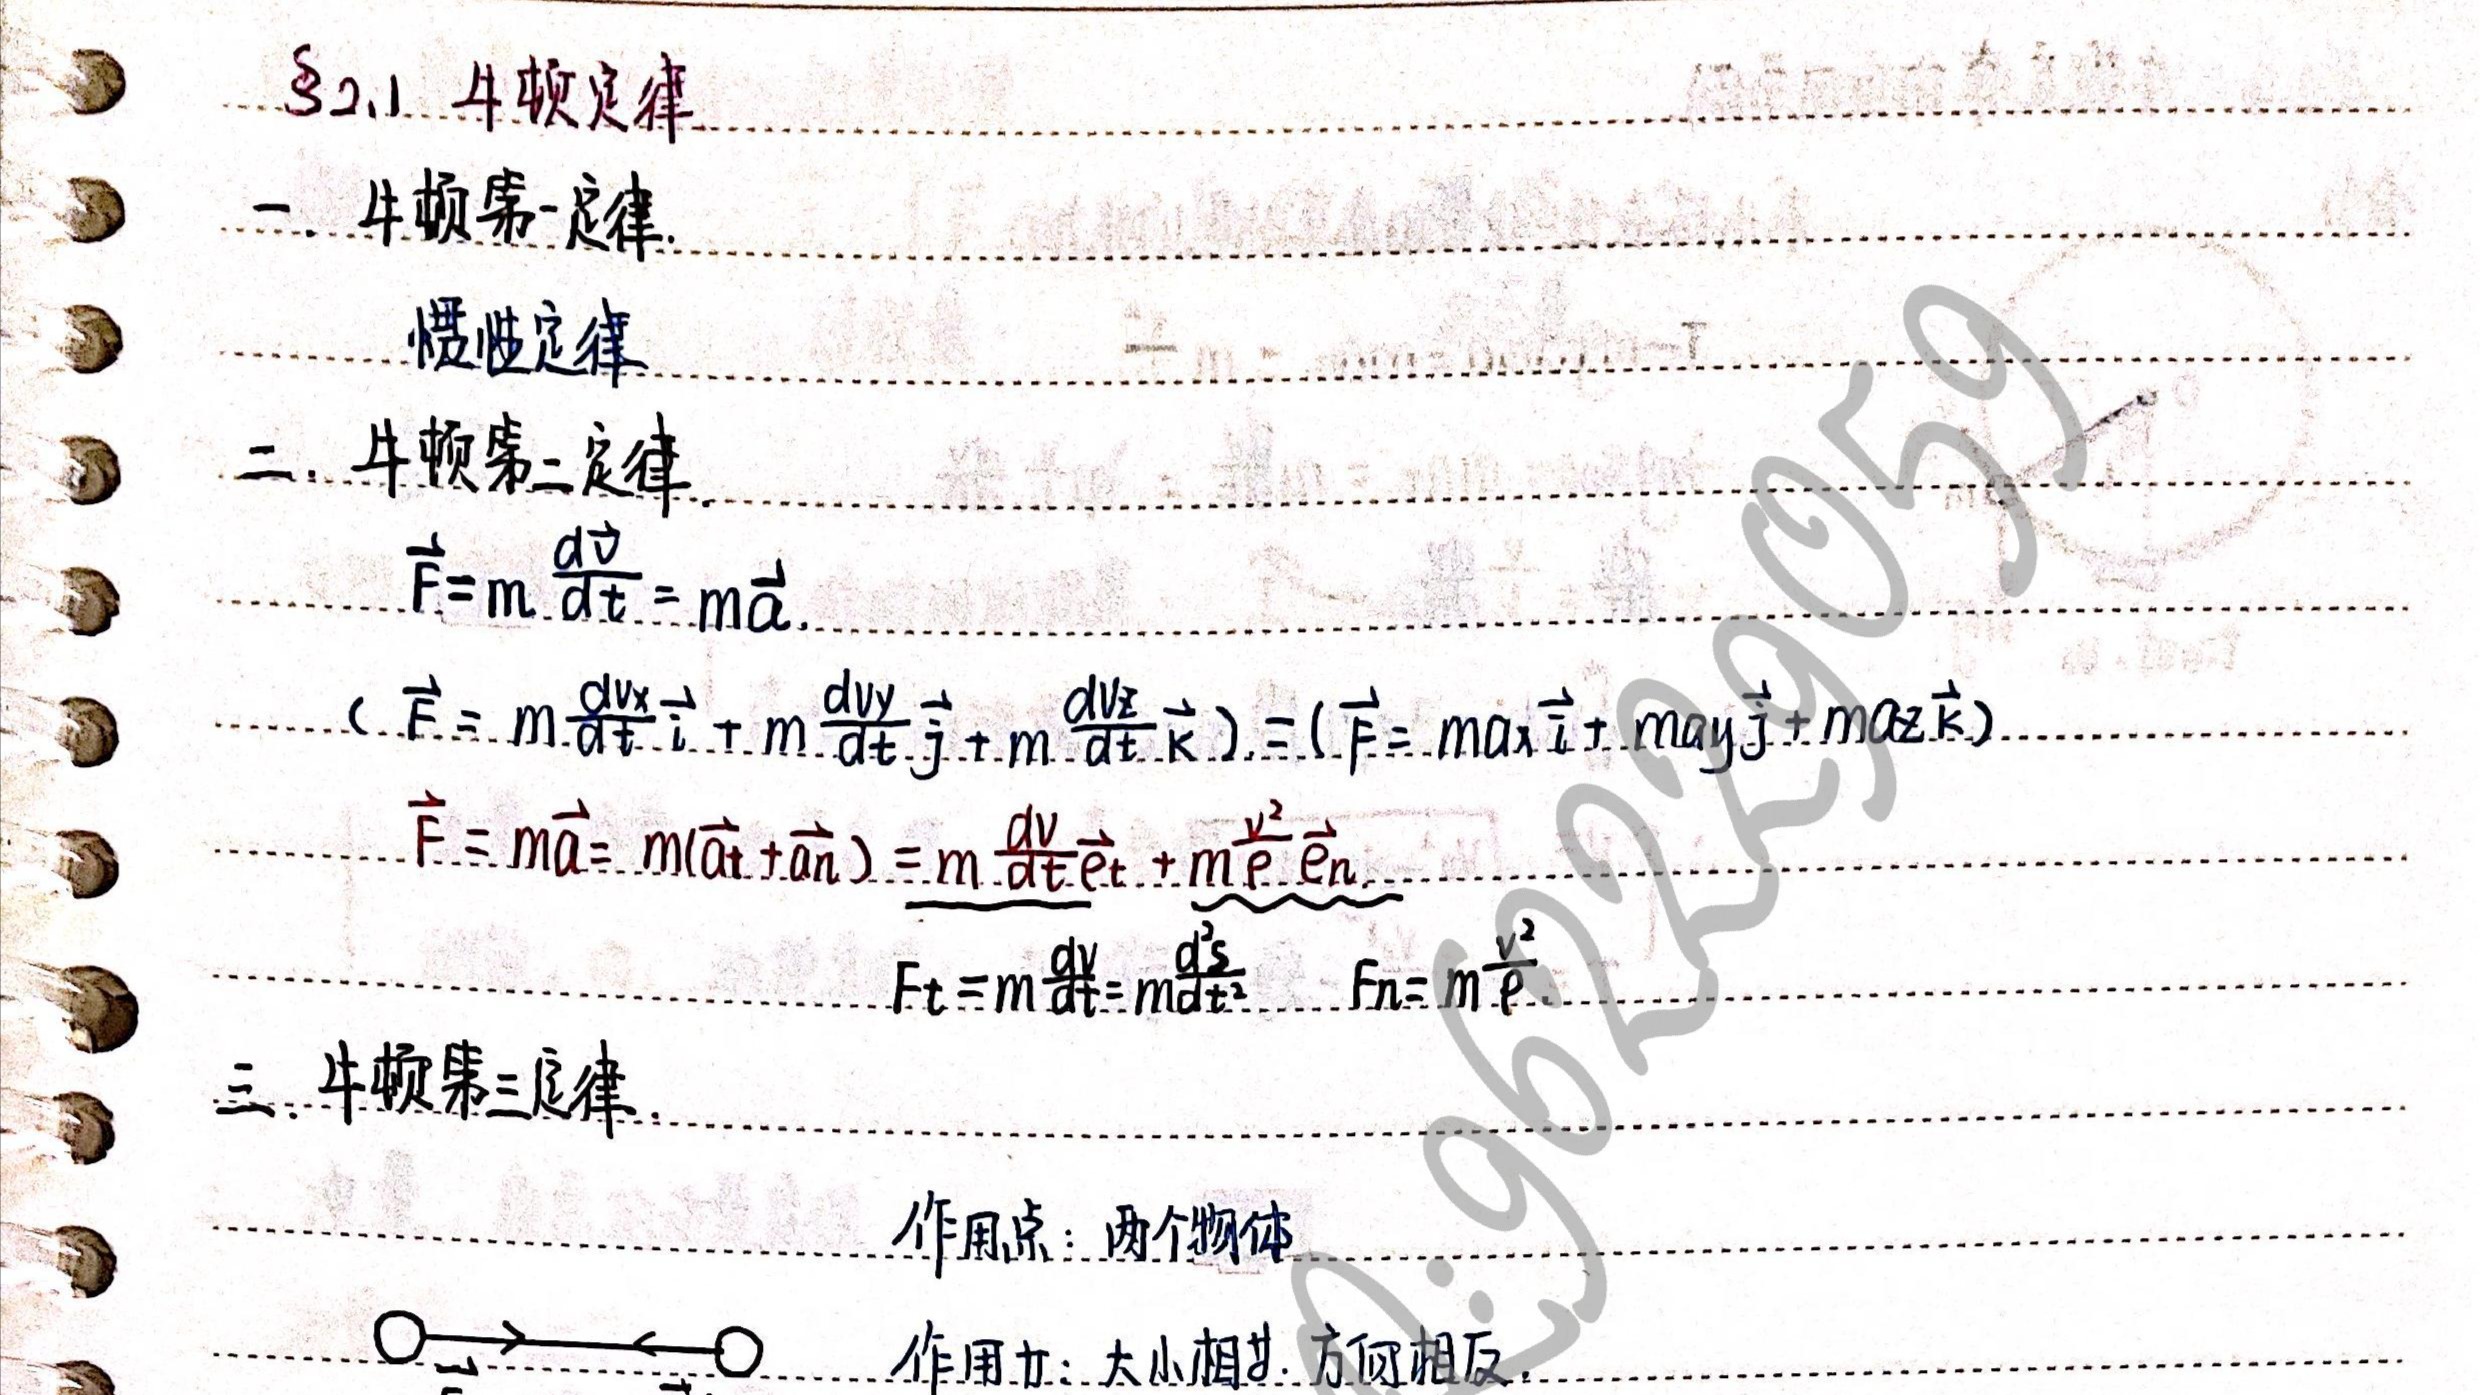 §2.1 牛顿定律
一. 牛顿第一定律.
惯性定律
二. 牛顿第二定律.
F⃗ = m dv⃗/dt = ma⃗.
( F⃗ = m dvx/dt i⃗ + m dvy/dt j⃗ + m dvz/dt k⃗ ) = ( F⃗ = max i⃗ + may j⃗ + maz k⃗ )
F⃗ = ma⃗ = m(a⃗t + a⃗n) = m dv/dt e⃗t + m v²/ρ e⃗n.
Ft = m dv/dt = m d²s/dt² Fn = m v²/ρ.
三. 牛顿第三定律.
作用点: 两个物体
作用力: 大小相等. 方向相反.
:962229059